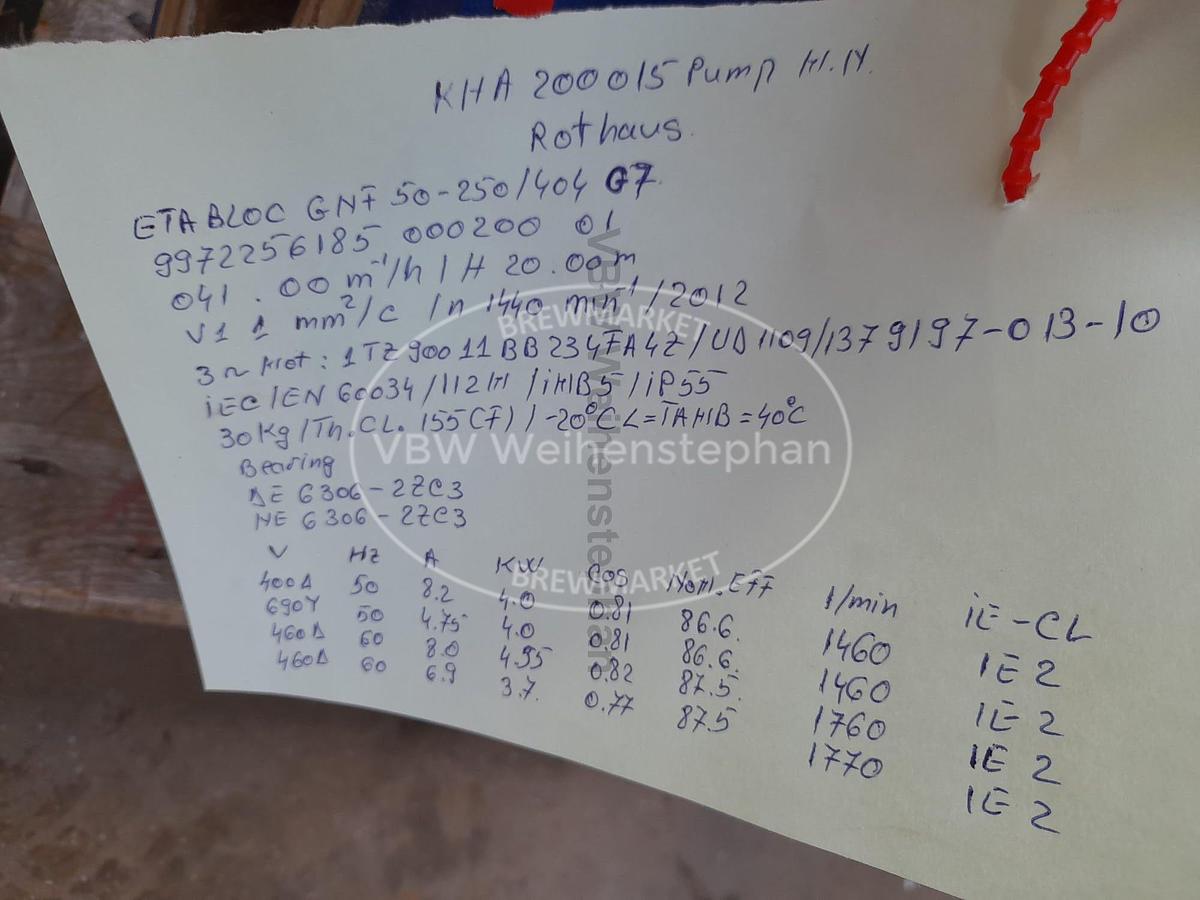 KHA 200015 Pump H.H.
Rothaus.
ETABLOC GNF 50-250/404 G7
9972256185 000200 01
041.00 m⁻¹/h / H 20.00m
V1 1 mm²/c / n 1440 min⁻¹ / 2012
3~ Mot: 1TZ90011BB234FA4Z/UD1109/1379197-013-10
iEC/EN 60034/112M/iMB5/iP55
30Kg/Th.CL. 155(F)/-20°CL=TAMB=40°C
Bearing
DE 6306-2ZC3
NE 6306-2ZC3
V Hz A KW Cos Nom.EFF 1/min iE-CL
400Δ 50 8.2 4.0 0.81 86.6. 1460 IE 2
690Y 50 4.75 4.0 0.81 86.6. 1460 IE 2
460Δ 60 8.0 4.95 0.82 87.5. 1760 IE 2
460Δ 60 6.9 3.7. 0.77 87.5 1770 IE 2
BREWMARKET
VBW Weihenstephan
BREWMARKET
VBW Weihenstephan